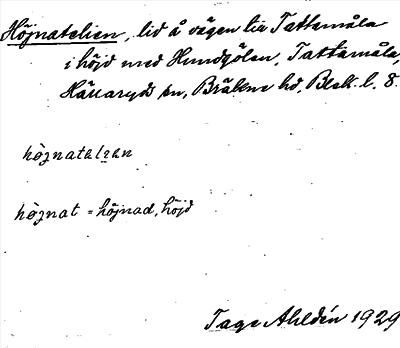 Höjnatelien, lid å vägen till Tattamåla
i höjd med Hundgölen, Tattamåla,
Hällaryds sn, Bräkne hd, Blek. l. 8.
hȯȷnatelıen
hȯȷnat = höjnad, höjd
Tage Ahldén 1929